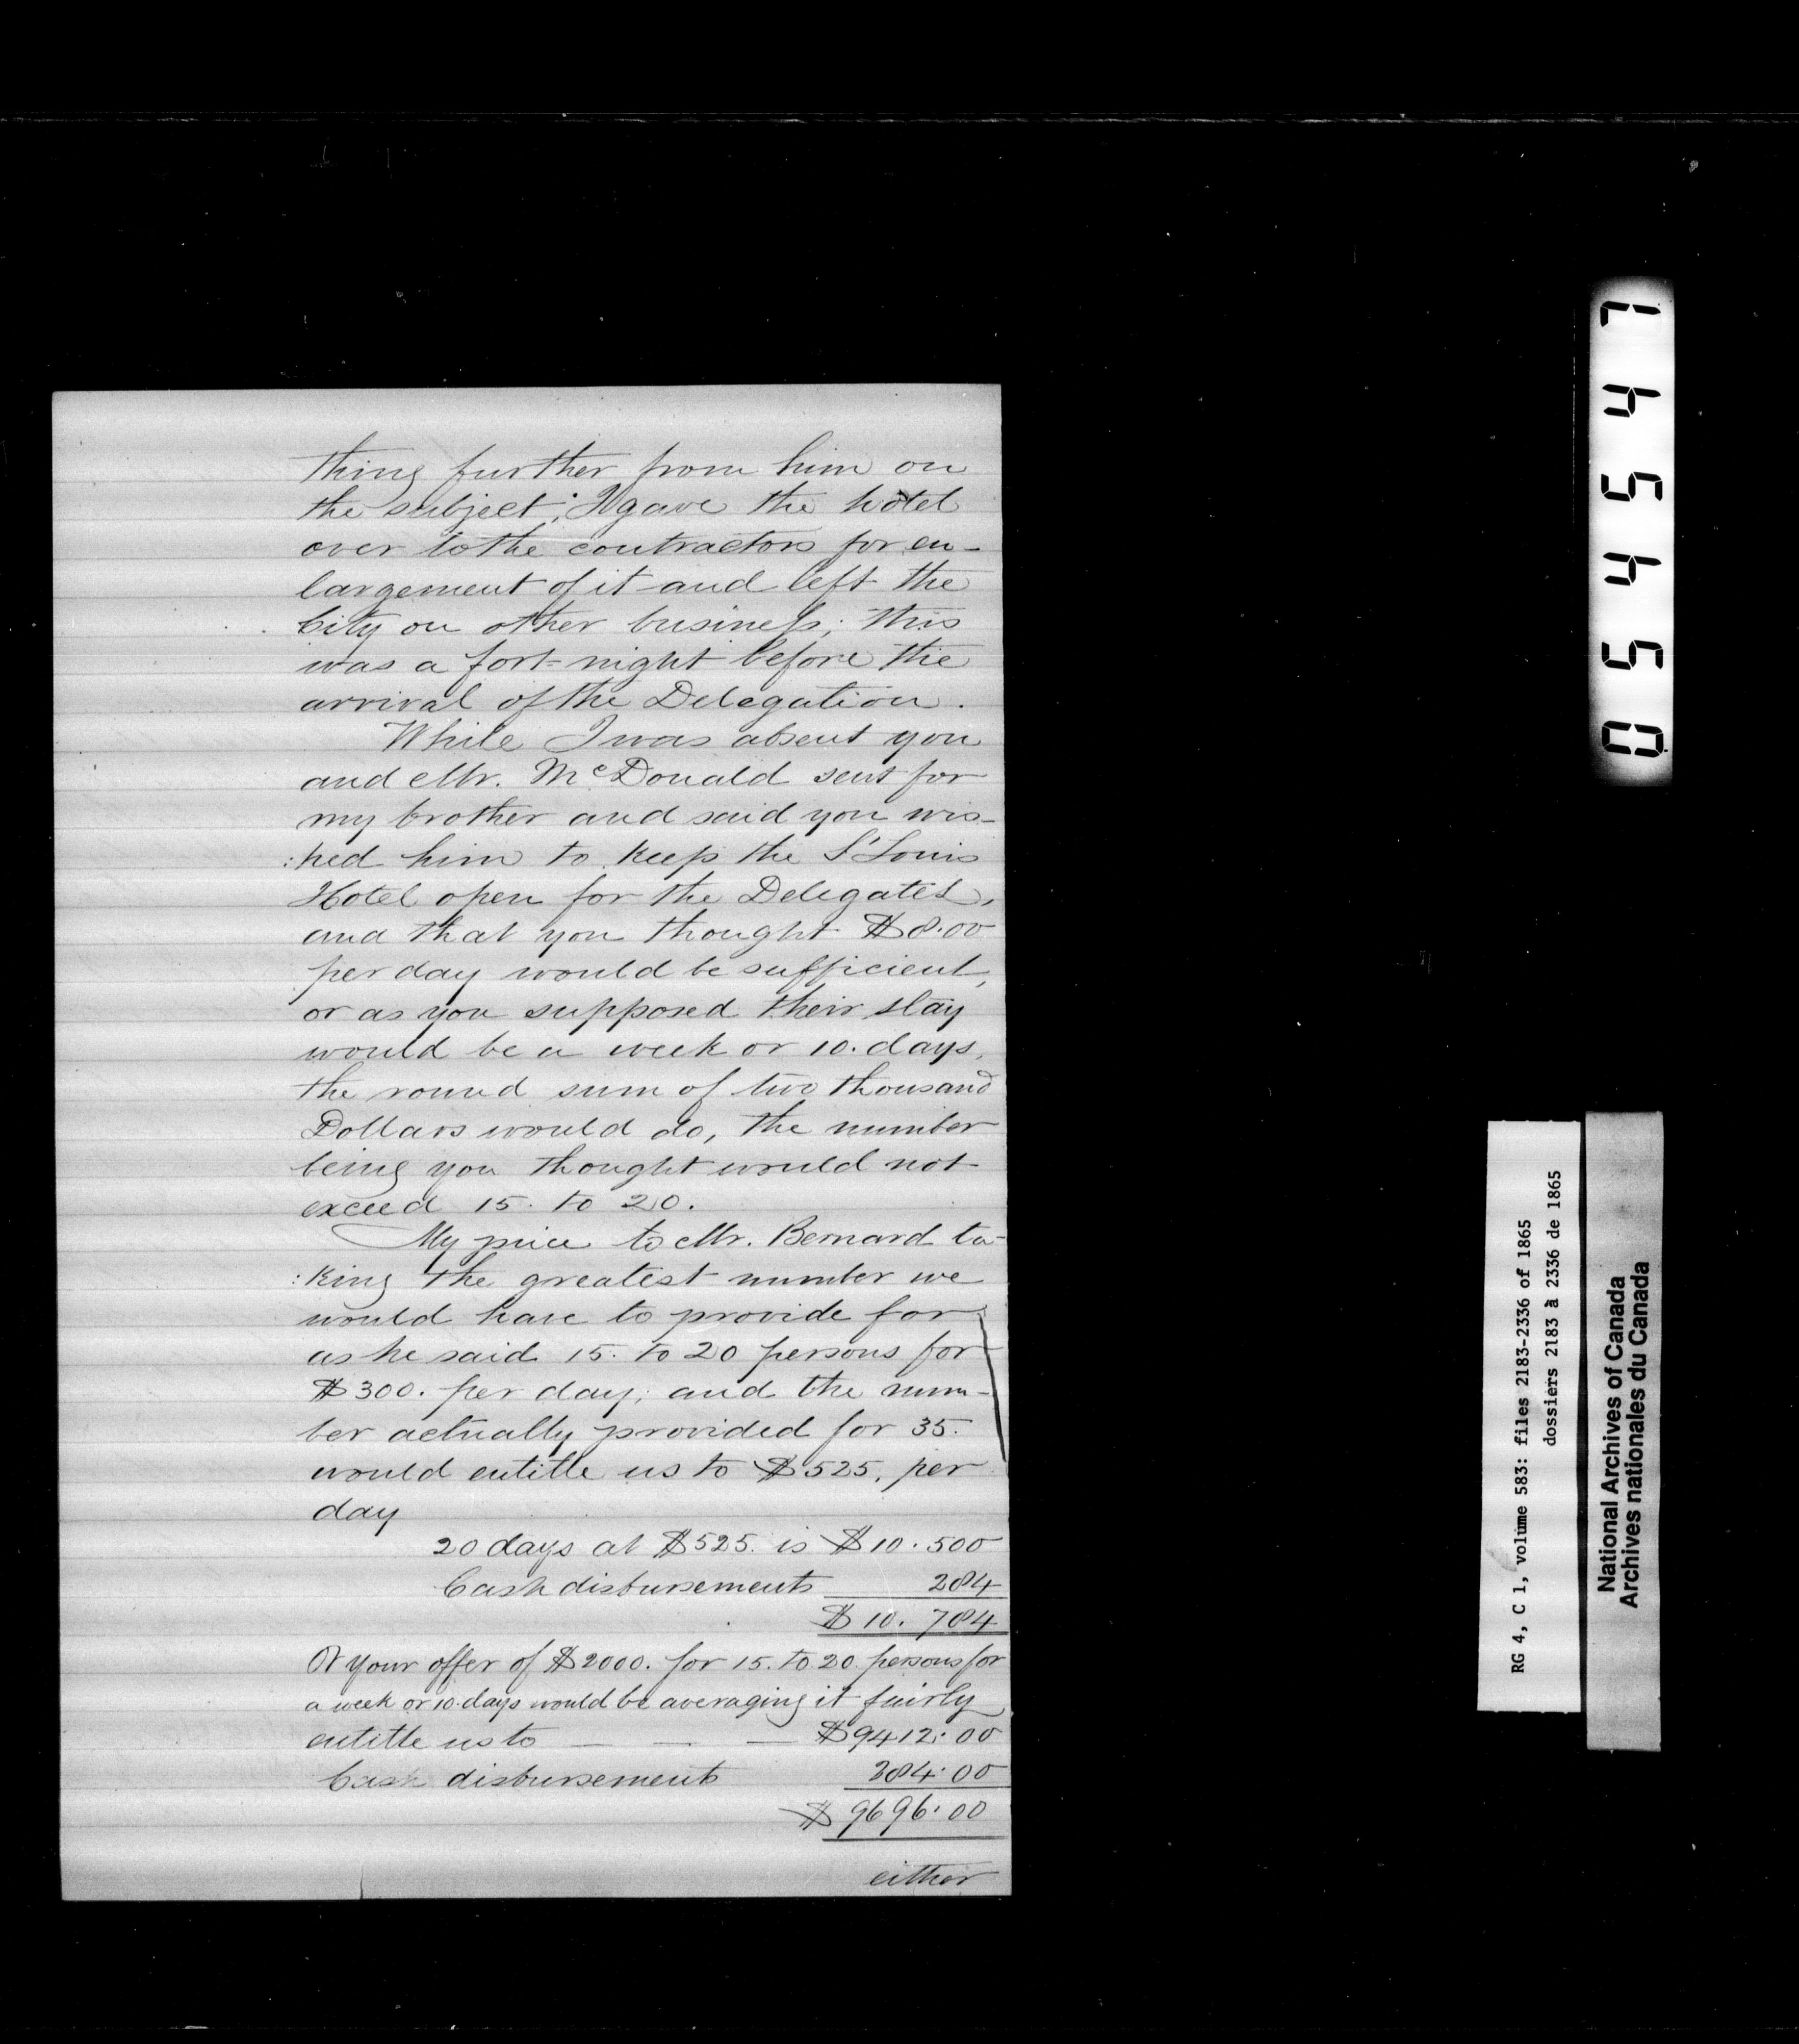 thing further from him on
the subject; I gave the hotel
over to the contractors for en-
largement of it and left the
City on other business; this
was a fort-night before the
arrival of the Delegation.
While I was absent you
and Mr. McDonald sent for
my brother and said you wis-
:hed him to keep the St Louis
Hotel open for the Delegates,
and that you thought $8.00
per day would be sufficient,
or as you supposed their stay
would be a week or 10. days,
the round sum of two thousand
Dollars would do, the number
being you thought would not
exceed 15. to 20.
My price to Mr. Bernard ta-
:king the greatest number we
would have to provide for
as he said 15. to 20 persons for
$300. per day; and the num-
ber actually provided for 35.
would entitle us to $525, per
day
20 days at $525. is $10.500
Cash disbursements 284
$10. 784
Or your offer of $2000. for 15. to 20. persons for
a week or 10. days would be averaging it fairly
entitle us to — — — $9412.00
Cash disbursements 284.00
$9696.00
either
054547
RG 4, C 1, volume 583: files 2183-2336 of 1865
dossiers 2183 à 2336 de 1865
National Archives of Canada
Archives nationales du Canada